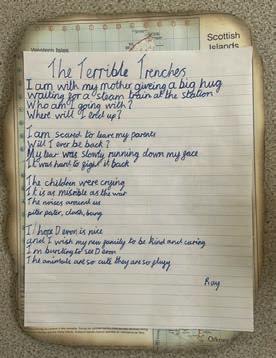 Western Isles
Scottish
Islands
The Terrible Trenches
I am with my mother giveing a big hug
waiting for a steam train at the station
Who am I going with?
Where will I end up?
I am scared to leave my parents
Will I ever be back?
My tear was slowly running down my face
It was hard to fight it back
The children were crying
It is as misrible as the war
The noises around us
piter pater, clash, bang
I hope Devon is nice
and I wish my new family to be kind and caring
I am bursting to see Devon
The animals are so cute they are so fluffy
Ray
Orkney